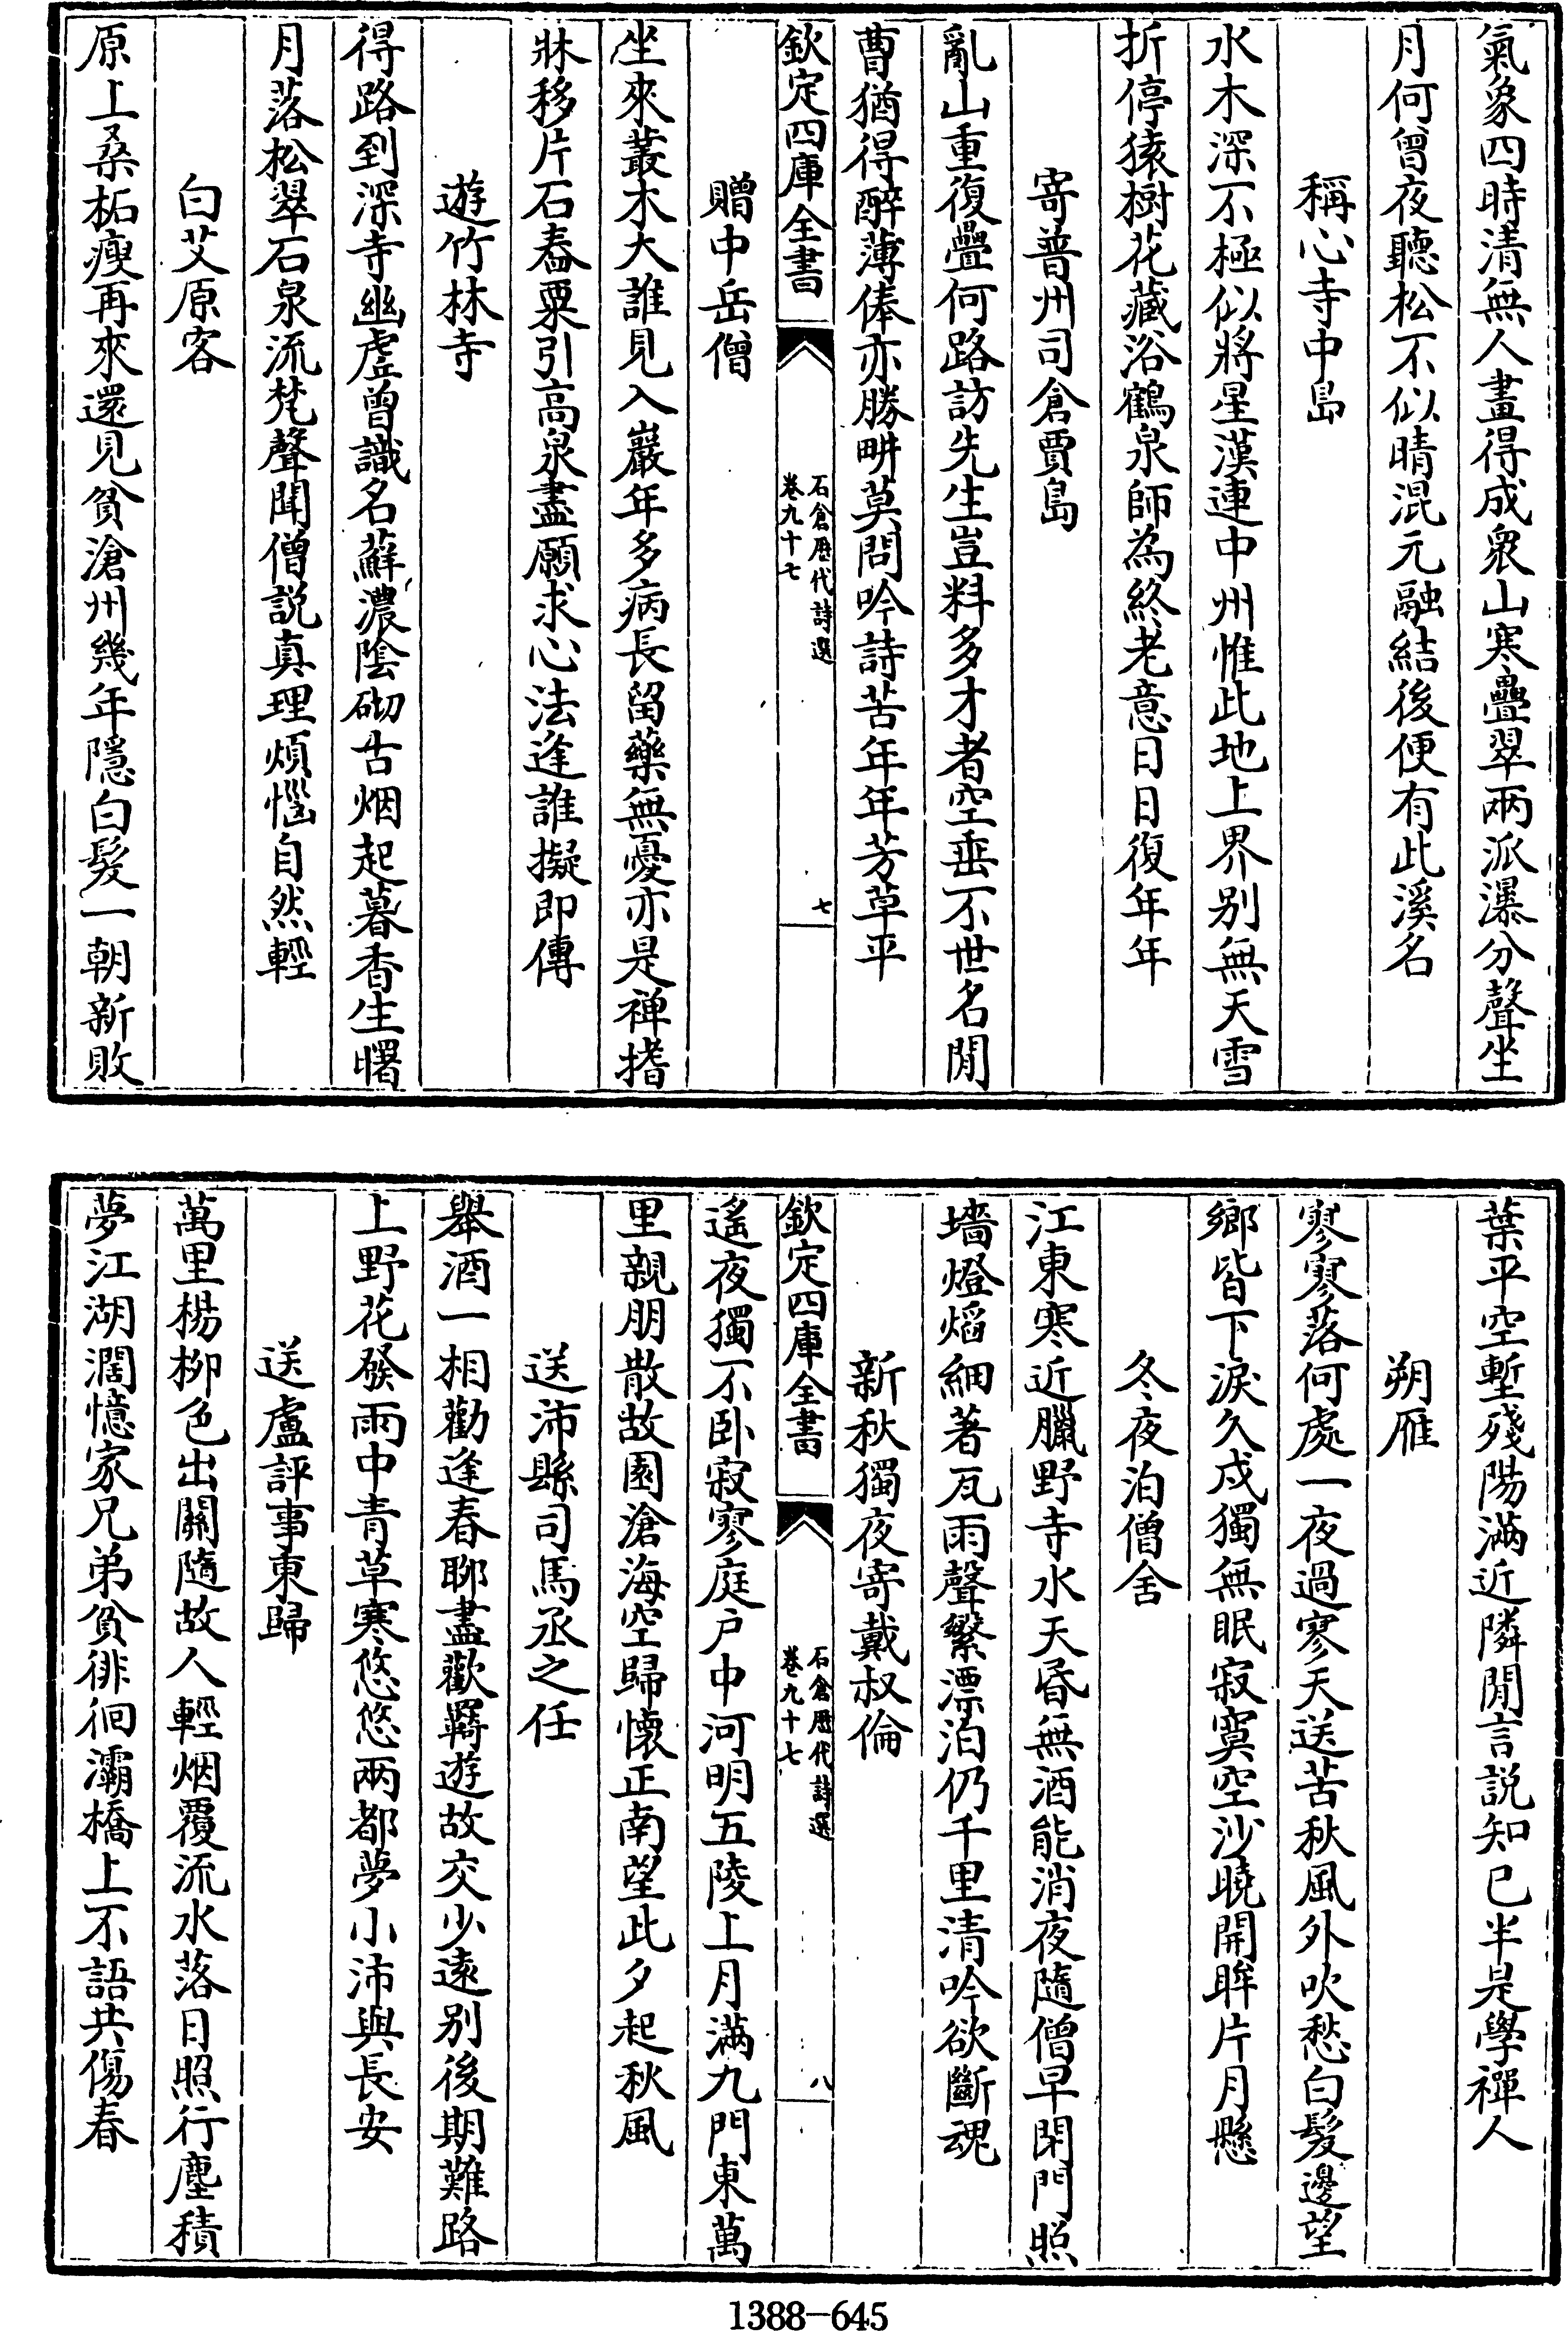 氣象四時清無人畫得成衆山寒疊翠兩派瀑分聲坐
月何曾夜聽松不似晴混元融結後便有此溪名
稱心寺中島
水木深不極似將星漢連中州惟此地上界别無天雪
折停猿樹花藏浴鶴泉師為終老意日日復年年
寄普州司倉賈島
亂山重復疊何路訪先生豈料多才者空垂不世名閒
曹猶得醉薄俸亦勝畊莫問吟詩苦年年芳草平
欽定四庫全書
石倉歴代詩選
卷九十七
七
贈中岳僧
坐來叢木大誰見入巖年多病長留藥無憂亦是禪揩
牀移片石舂粟引高泉盡願求心法逢誰擬即傳
遊竹林寺
得路到深寺幽虛曾識名蘚濃陰砌古烟起暮香生曙
月落松翠石泉流梵聲聞僧説真理煩惱自然輕
白艾原客
原上桑柘瘦再來還見貧滄州幾年隱白髮一朝新敗
葉平空塹殘陽滿近隣閒言説知己半是學禪人
朔雁
寥寥落何處一夜過寥天送苦秋風外吹愁白髮邊望
鄉皆下淚久戍獨無眠寂寞空沙曉開眸片月懸
冬夜泊僧舍
江東寒近臘野寺水天昏無酒能消夜隨僧早閉門照
墻燈熖細著瓦雨聲繁漂泊仍千里清吟欲斷魂
新秋獨夜寄戴叔倫
欽定四庫全書
石倉歴代詩選
卷九十七
八
遙夜獨不卧寂寥庭户中河明五陵上月滿九門東萬
里親朋散故園滄海空歸懷正南望此夕起秋風
送沛縣司馬丞之任
舉酒一相勸逢春聊盡歡羇遊故交少遠别後期難路
上野花發雨中青草寒悠悠兩都夢小沛與長安
送盧評事東歸
萬里楊柳色出關隨故人輕烟覆流水落日照行塵積
夢江湖濶憶家兄弟貧徘徊灞橋上不語共傷春
1388-645